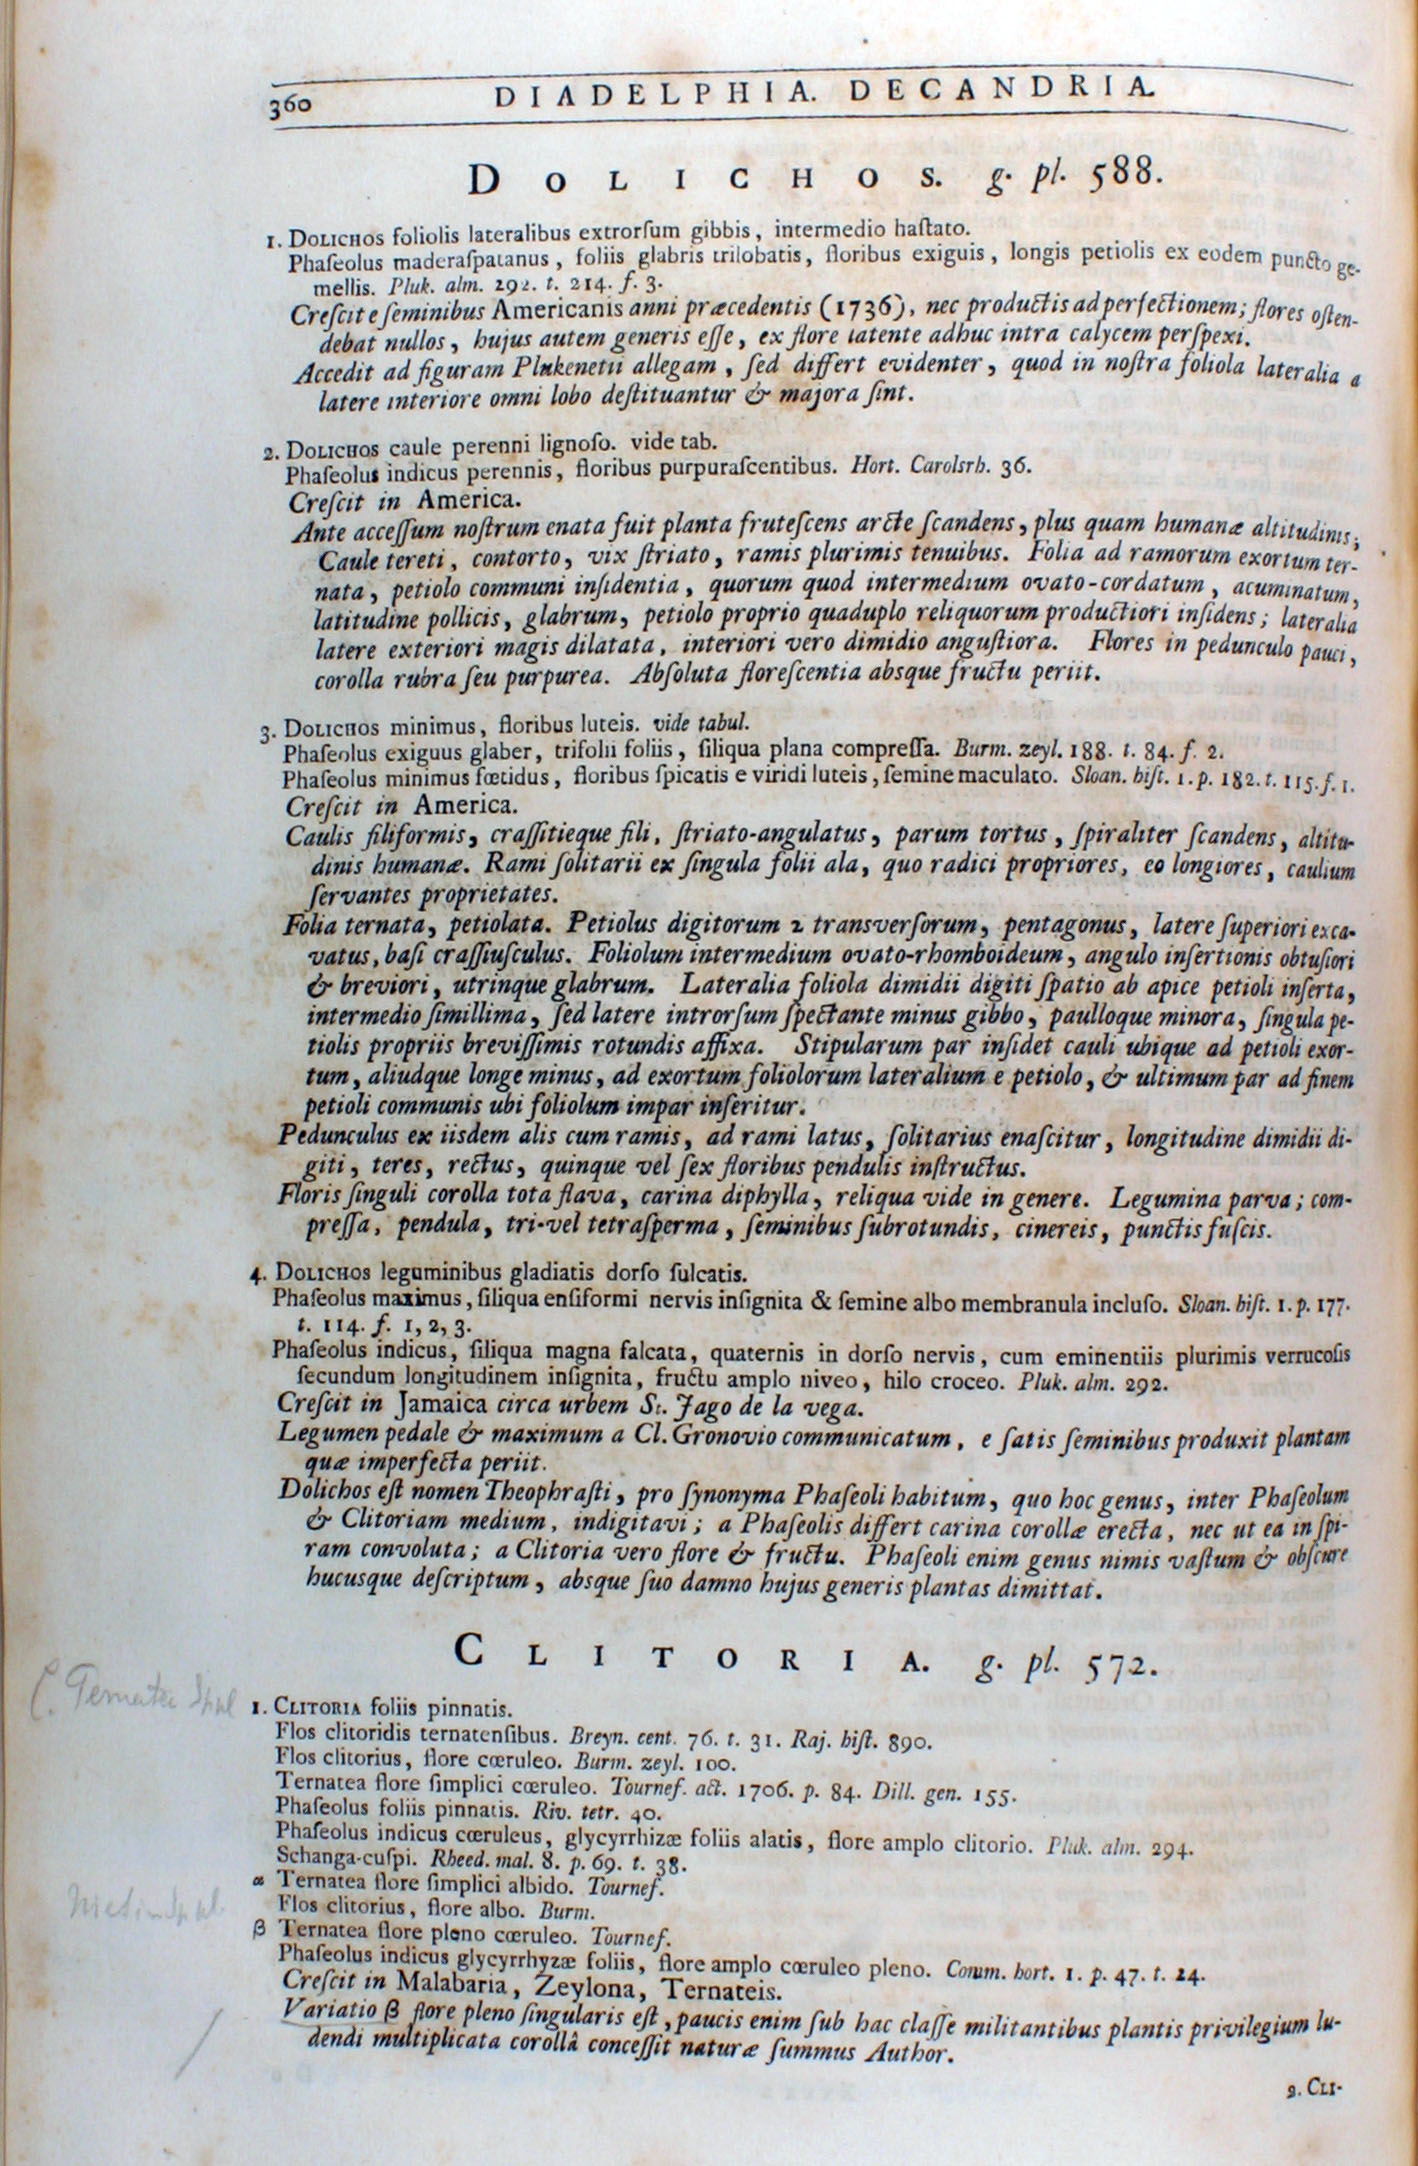 360 DIADELPHIA. DECANDRIA.
DOLICHOS. g. pl. 588.
1. DOLICHOS foliolis lateralibus extrorſum gibbis, intermedio haſtato.
Phaſeolus maderaſpatanus, foliis glabris trilobatis, floribus exiguis, longis petiolis ex eodem puncto ge-
mellis. Pluk. alm. 292. t. 214. f. 3.
Creſcit e ſeminibus Americanis anni præcedentis (1736), nec productis ad perfectionem; flores oſten-
debat nullos, hujus autem generis eſſe, ex flore latente adhuc intra calycem perſpexi.
Accedit ad figuram Plukenetii allegam, ſed differt evidenter, quod in noſtra foliola lateralia a
latere interiore omni lobo deſtituantur & majora ſint.
2. DOLICHOS caule perenni lignoſo. vide tab.
Phaſeolus indicus perennis, floribus purpuraſcentibus. Hort. Carolsrh. 36.
Creſcit in America.
Ante acceſſum noſtrum enata fuit planta fruteſcens arcte ſcandens, plus quam humanæ altitudinis.
Caule tereti, contorto, vix ſtriato, ramis plurimis tenuibus. Folia ad ramorum exortum ter-
nata, petiolo communi inſidentia, quorum quod intermedium ovato-cordatum, acuminatum,
latitudine pollicis, glabrum, petiolo proprio quaduplo reliquorum productiori inſidens; lateralia
latere exteriori magis dilatata, interiori vero dimidio anguſtiora. Flores in pedunculo pauci,
corolla rubra ſeu purpurea. Abſoluta floreſcentia absque fructu periit.
3. DOLICHOS minimus, floribus luteis. vide tabul.
Phaſeolus exiguus glaber, trifolii foliis, ſiliqua plana compreſſa. Burm. zeyl. 188. t. 84. f. 2.
Phaſeolus minimus fœtidus, floribus ſpicatis e viridi luteis, ſemine maculato. Sloan. hiſt. 1. p. 182. t. 115. f. 1.
Creſcit in America.
Caulis filiformis, craſſitieque fili, ſtriato-angulatus, parum tortus, ſpiraliter ſcandens, altitu-
dinis humanæ. Rami ſolitarii ex ſingula folii ala, quo radici propriores, eo longiores, caulium
ſervantes proprietates.
Folia ternata, petiolata. Petiolus digitorum 2 transverſorum, pentagonus, latere ſuperiori exca-
vatus, baſi craſſiuſculus. Foliolum intermedium ovato-rhomboideum, angulo inſertionis obtuſiori
& breviori, utrinque glabrum. Lateralia foliola dimidii digiti ſpatio ab apice petioli inſerta,
intermedio ſimillima, ſed latere introrſum ſpectante minus gibbo, paulloque minora, ſingula pe-
tiolis propriis breviſſimis rotundis affixa. Stipularum par inſidet cauli ubique ad petioli exor-
tum, aliudque longe minus, ad exortum foliolorum lateralium e petiolo, & ultimum par ad finem
petioli communis ubi foliolum impar inſeritur.
Pedunculus ex iisdem alis cum ramis, ad rami latus, ſolitarius enaſcitur, longitudine dimidii di-
giti, teres, rectus, quinque vel ſex floribus pendulis inſtructus.
Floris ſinguli corolla tota flava, carina diphylla, reliqua vide in genere. Legumina parva; com-
preſſa, pendula, tri-vel tetraſperma, ſeminibus ſubrotundis, cinereis, punctis fuſcis.
4. DOLICHOS leguminibus gladiatis dorſo ſulcatis.
Phaſeolus maximus, ſiliqua enſiformi nervis inſignita & ſemine albo membranula incluſo. Sloan. hiſt. 1. p. 177.
t. 114. f. 1, 2, 3.
Phaſeolus indicus, ſiliqua magna falcata, quaternis in dorſo nervis, cum eminentiis plurimis verrucoſis
ſecundum longitudinem inſignita, fructu amplo niveo, hilo croceo. Pluk. alm. 292.
Creſcit in Jamaica circa urbem St. Jago de la vega.
Legumen pedale & maximum a Cl. Gronovio communicatum, e ſatis ſeminibus produxit plantam
quæ imperfecta periit.
Dolichos eſt nomen Theophraſti, pro ſynonyma Phaſeoli habitum, quo hoc genus, inter Phaſeolum
& Clitoriam medium, indigitavi; a Phaſeolis differt carina corollæ erecta, nec ut ea in ſpi-
ram convoluta; a Clitoria vero flore & fructu. Phaſeoli enim genus nimis vaſtum & obſcure
hucusque deſcriptum, absque ſuo damno hujus generis plantas dimittat.
CLITORIA. g. pl. 572.
C. Ternatea
1. CLITORIA foliis pinnatis.
Flos clitoridis ternatenſibus. Breyn. cent. 76. t. 31. Raj. hiſt. 890.
Flos clitorius, flore cœruleo. Burm. zeyl. 100.
Ternatea flore ſimplici cœruleo. Tournef. act. 1706. p. 84. Dill. gen. 155.
Phaſeolus foliis pinnatis. Riv. tetr. 40.
Phaſeolus indicus cœruleus, glycyrrhizæ foliis alatis, flore amplo clitorio. Pluk. alm. 294.
Schanga-cuſpi. Rheed. mal. 8. p. 69. t. 38.
α Ternatea flore ſimplici albido. Tournef.
Flos clitorius, flore albo. Burm.
β Ternatea flore pleno cœruleo. Tournef.
Phaſeolus indicus glycyrrhyzæ foliis, flore amplo cœruleo pleno. Comm. hort. 1. p. 47. t. 24.
Creſcit in Malabaria, Zeylona, Ternateis.
Variatio β flore pleno ſingularis eſt, paucis enim ſub hac claſſe militantibus plantis privilegium lu-
dendi multiplicata corollâ conceſſit naturæ ſummus Author.
2. CLI-